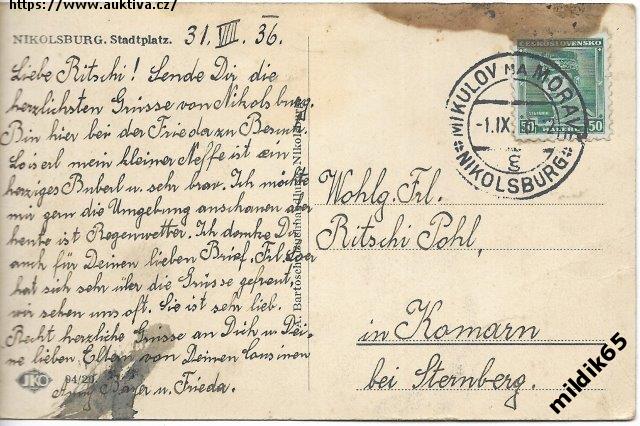 https://www.auktiva.cz/
NIKOLSBURG. Stadtplatz.
31. VIII. 36.
Liebe Ritschi! Sende Dir die
herzlichsten Grüsse von Nikolsburg.
Bin hier bei der Frieda zu Besuch.
Loiserl mein kleiner Neffe ist ein
herziges Buberl u. sehr brav. Ich möchte
mir gern die Umgebung anschauen aber
heute ist Regenwetter. Ich danke Dir
auch für Deinen lieben Brief. Frl.
hat sich sehr über die Grüsse gefreut,
wir sehen uns oft. Sie ist sehr lieb.
Recht herzliche Grüsse an Dich u. Dei-
ne lieben Eltern von Deinen Cousinen
Bayer u. Frieda.
JKO
94/20
Bartosch, Nikolsburg
ČESKOSLOVENSKO
50 HALÉŘŮ 50
MIKULOV NA MORAVĚ
-1.IX.
NIKOLSBURG
Wohlg. Frl.
Ritschi Pohl,
in Komarn
bei Sternberg.
mildik65